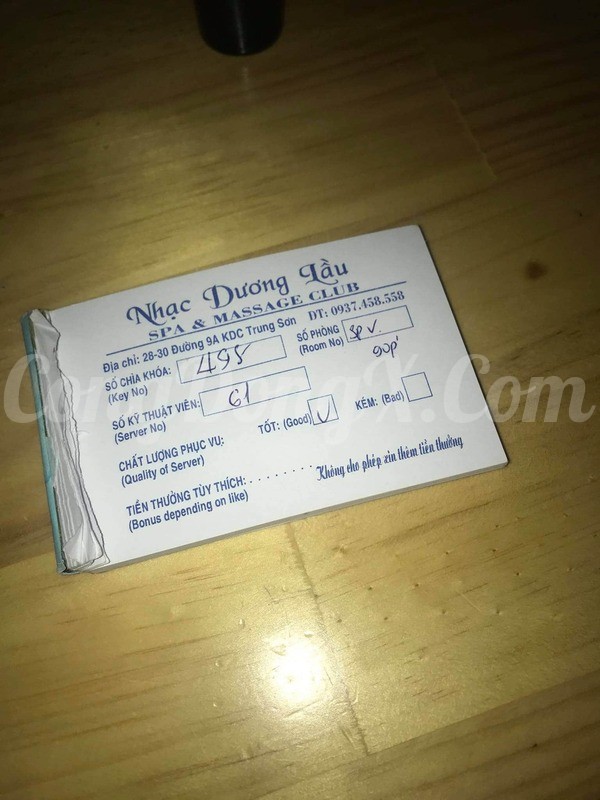 Nhạc Dương Lầu
SPA & MASSAGE CLUB
Địa chỉ: 28-30 Đường 9A KDC Trung Sơn ĐT: 0937.458.558
SỐ CHÌA KHÓA: 495 SỐ PHÒNG
(Key No) (Room No)
90p'
SỐ KỸ THUẬT VIÊN: 61
(Server No)
CHẤT LƯỢNG PHỤC VỤ: TỐT: (Good) V KÉM: (Bad)
(Quality of Server)
TIỀN THƯỞNG TÙY THÍCH: . . . . . . . . . Không cho phép xin thêm tiền thưởng
(Bonus depending on like)
CongDongX.Com